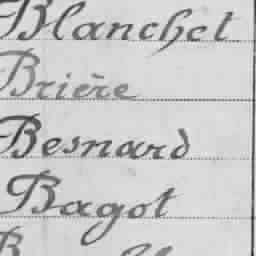 Blanchet
Brière
Besnard
Bagot